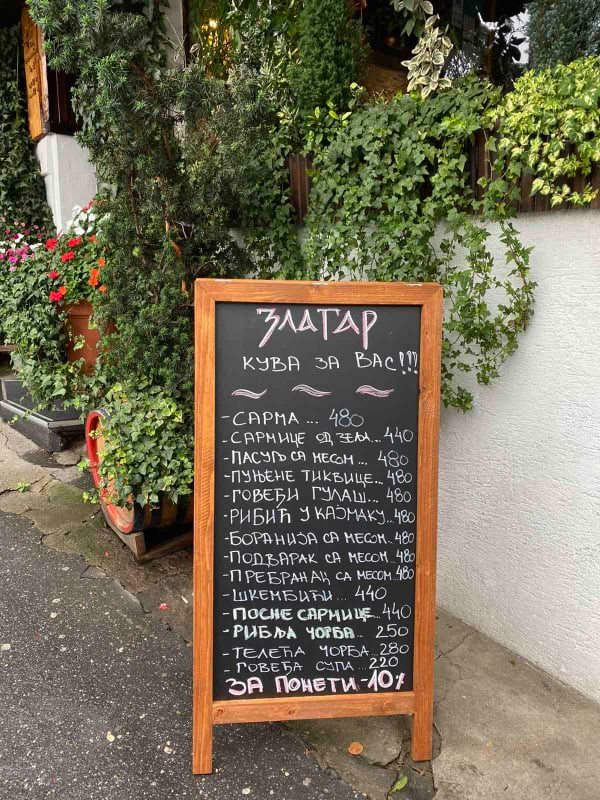 ЗЛАТАР
КУВА ЗА ВАС!!!
-САРМА... 480
-САРМИЦЕ ОД ЗЕЉА...440
-ПАСУЉ СА МЕСОМ... 480
-ПУЊЕНЕ ТИКВИЦЕ...480
-ГОВЕЂИ ГУЛАШ...480
-РИБИЋ У КАЈМАКУ..480
-БОРАНИЈА СА МЕСОМ..480
-ПОДВАРАК СА МЕСОМ..480
-ПРЕБРАНАЦ СА МЕСОМ.480
-ШКЕМБИЋИ... 440
-ПОСНЕ САРМИЦЕ..440
-РИБЉА ЧОРБА.. 250
-ТЕЛЕЋА ЧОРБА..280
-ГОВЕЂА СУПА...220
ЗА ПОНЕТИ -10%